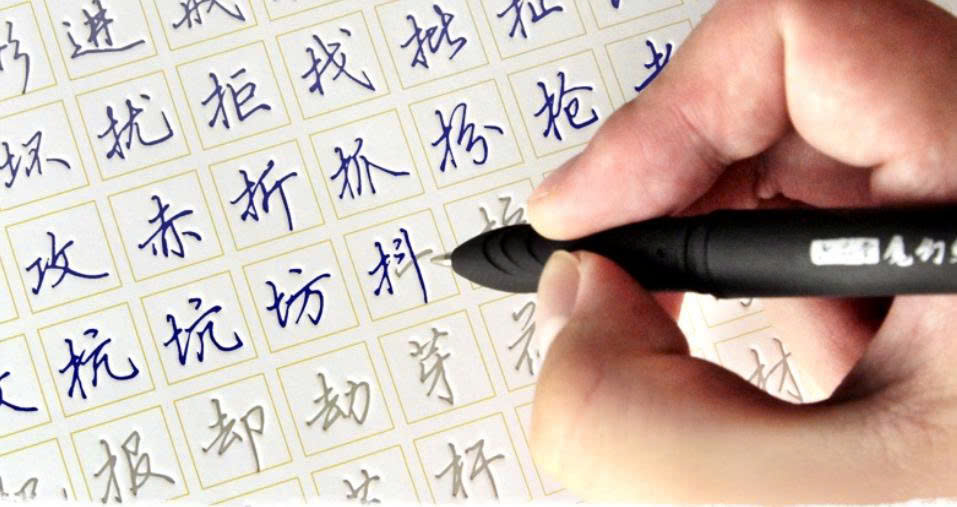 进
坏扰拒找批扯
攻赤折抓扮抢
抗坑坊抖
报却劫芽
杆材
魔幻